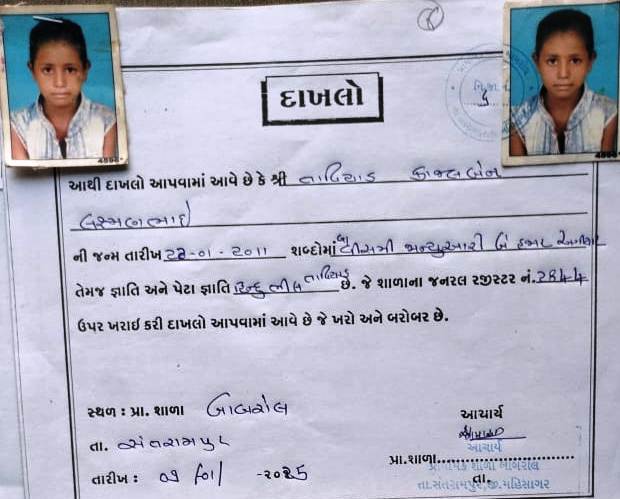 દાખલો
આથી દાખલો આપવામાં આવે છે કે શ્રી તાવિયાડ કાજલબેન
લક્ષ્મણભાઈ
ની જન્મ તારીખ 22-01-2011 શબ્દોમાં બાવીસમી જાન્યુઆરી બે હજાર અગીયાર
તેમજ જ્ઞાતિ અને પેટા જ્ઞાતિ હિન્દુ ભીલ તાવિયાડ છે. જે શાળાના જનરલ રજીસ્ટર નં. 2844
ઉપર ખરાઈ કરી દાખલો આપવામાં આવે છે જે ખરો અને બરોબર છે.
સ્થળ : પ્રા. શાળા બાબરોલ
આચાર્ય
તા. સંતરામપુર
આચાર્ય
પ્રા.શાળા
પ્રાથમિક શાળા બાબરોલ
તારીખ : 01/01/-2025
તા.
તા.સંતરામપુર,જી.મહિસાગર